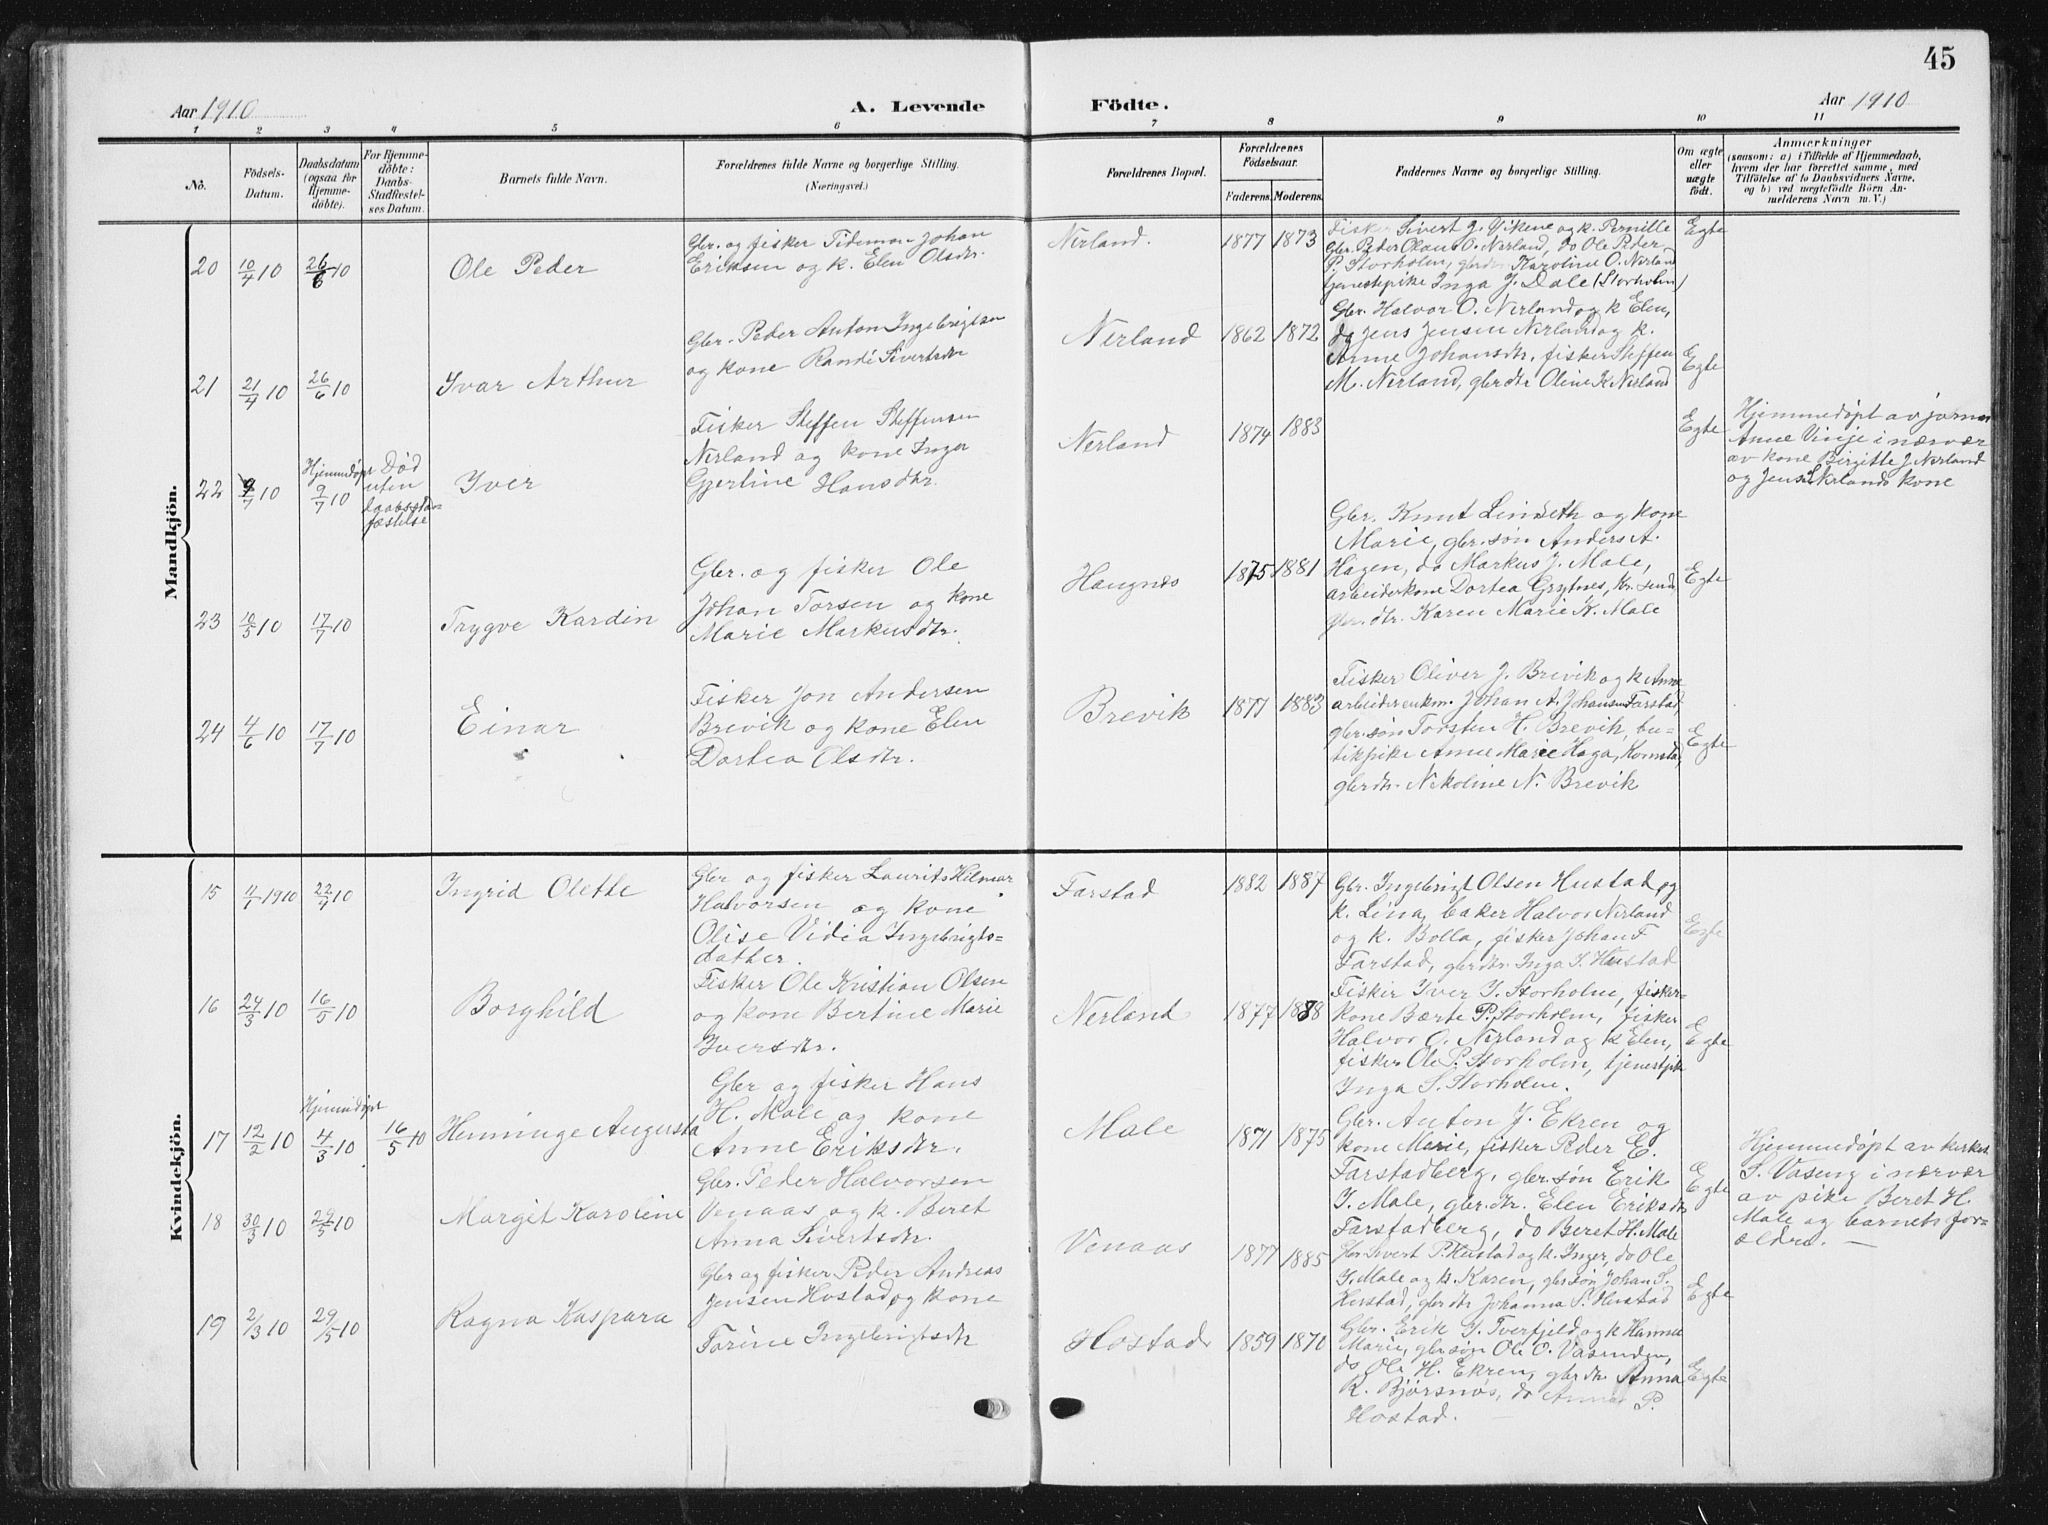 45
Aar 1910
A. Levende Födte.
Aar 1910
1 2 3 4 5 6 7 8 9 10 11
No.
Födsels-
Datum.
Daabsdatum
(ogsaa for
Hjemme-
döbte).
For Hjemme-
döbte:
Daabs-
Stadfæstel-
ses Datum.
Barnets fulde Navn.
Forældrenes fulde Navne og borgerlige Stilling.
(Næringsvei.)
Forældrenes Bopæl.
Forældrenes
Födselsaar.
Faderens. Moderens.
Faddernes Navne og borgerlige Stilling.
Om ægte
eller
uægte
födt.
Anmærkninger
(saasom: a) i Tilfælde af Hjemmedaab,
hvem der har forrettet samme, med
Tilföielse af to Daabsvidners Navne,
og b) ved uægtefödte Börn An-
melderens Navn m. V.)
Mandkjön.
20 10/4 10 26/6 10 Ole Peder
Gbr. og fisker Tideman Johan
Eriksen og k. Elen Olsdtr.
Nerland. 1877 1873
Fisker Sivert J. Vikene og k. Pernille
Gbr. Peder Olaus O. Nerland, do Ole Peder
P. Storholm, gbrdtr. Karoline O. Nerland
tjenestepike Inga J. Dale (Storholm)
Egte
21 21/4 10 26/6 10 Ivar Arthur
Gbr. Peder Anton Ingebrigtsen
og kone Randi Sivertsdtr
Nerland 1862 1872
Gbr. Halvor O. Nerland og k Elen,
do Jens Jensen Nerland og k.
Anne Johansdtr, fisker Steffen
M. Nerland, gbrdtr Oline K. Nerland
Egte
22 9/7 10 Hjemmedøpt 9/7 10
Død
uten
daabsstad-
fæstelse
Iver
Fisker Steffen Steffensen
Nerland og kone Inger
Gjertine Hansdtr.
Nerland 1874 1883
Egte
Hjemmedøpt av jormor
Anne Vinje i nærvær
av kone Birgitte J. Nerland
og Jens Nerlands kone
23 10/5 10 17/7 10 Trygve Kardin
Gbr. og fisker Ole
Johan Torsen og kone
Marie Markusdtr.
Haugnes 1875 1881
Gbr. Knut Linseth og kone
Marie, gbr. søn Anders A.
Hagen, do Markus J. Male,
arbeiderkone Dortea Grytnes, Kr.sund
gbr. dtr. Karen Marie K. Male
Egte
24 4/6 10 17/7 10 Einar
Fisker Jon Andersen
Brevik og kone Elen
Dortea Olsdtr.
Brevik 1877 1883
Fisker Oliver J. Brevik og k Anne
arbeiderenkm. Johan A. Johansen Farstad,
gbr. søn Torsten H. Brevik, bu-
tikpike Anne Marie Haga, Kornstad,
gbrdtr. Nikoline N. Brevik
Egte
Kvindekjön.
15 11/1 1910 22/4 10 Ingrid Olette
Gbr og fisker Laurits Hilmar
Halvorsen og kone
Olise Vidia Ingebrigts-
datter.
Farstad 1882 1887
Gbr. Ingebrigt Olsen Hustad og
k. Lina, baker Halvor Nerland
og k. Bolla, fisker Johan F
Farstad, gbrdtr. Inga S. Hustad
Egte
16 24/3 10 16/5 10 Borghild
Fisker Ole Kristian Olsen
og kone Bertine Marie
Iversdtr.
Nerland 1877 1888
Fisker Iver I. Storholm, fisker-
kone Bærte P. Storholm, fisker
Halvor O. Nerland og k Elen,
fisker Ole P. Storholm, tjenestpik
Inga S. Storholm.
Egte
17 12/2 10 Hjemmedøpt 4/3 10 16/5 10 Henninge Augusta
Gbr og fisker Hans
H. Male og kone
Anne Eriksdtr.
Male 1871 1875
Gbr. Anton J. Ekren og
kone Marie, fisker Peder E.
Farstadberg, gbr. søn Erik
I. Male, gbr. dtr. Elen Eriksdtr
Farstadberg, do Beret H. Male
Egte
Hjemmedøpt av kirkes.
S. Vaseng i nærvær
av pike Beret H.
Male og barnets for-
ældre. —
18 30/3 10 29/5 10 Margit Karoline
Gbr. Peder Halvorsen
Venaas og k. Beret
Anna Sivertsdtr.
Venaas 1877 1885
Gbr. Sivert P. Hustad og k. Inger, do Ole
I. Male og k. Karen, gbr søn Johan S.
Hustad, gbrdtr Johanna P. Hustad
Egte
19 2/3 10 29/5 10 Ragna Kaspara
Gbr og fisker Peder Andreas
Jensen Hostad og kone
Torine Ingebrigtsdtr
Hostad 1859 1870
Gbr. Erik I. Tverfjeld og k Hanna
Marie, gbr søn Ole O. Vasenden,
do Ole H. Ekren, gbr dtr. Anna
K. Bjørsnøs, do Anne P.
Hostad.
Egte